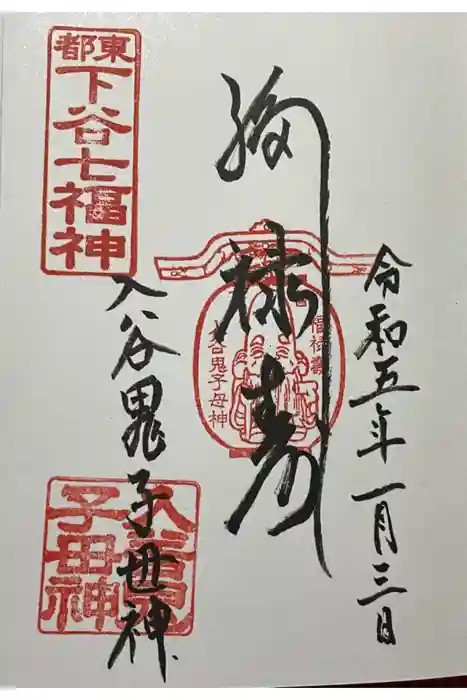 東都
下谷七福神
福禄寿
福禄壽
入谷鬼子母神
令和五年一月三日
入谷鬼子母神
入谷鬼
子母神